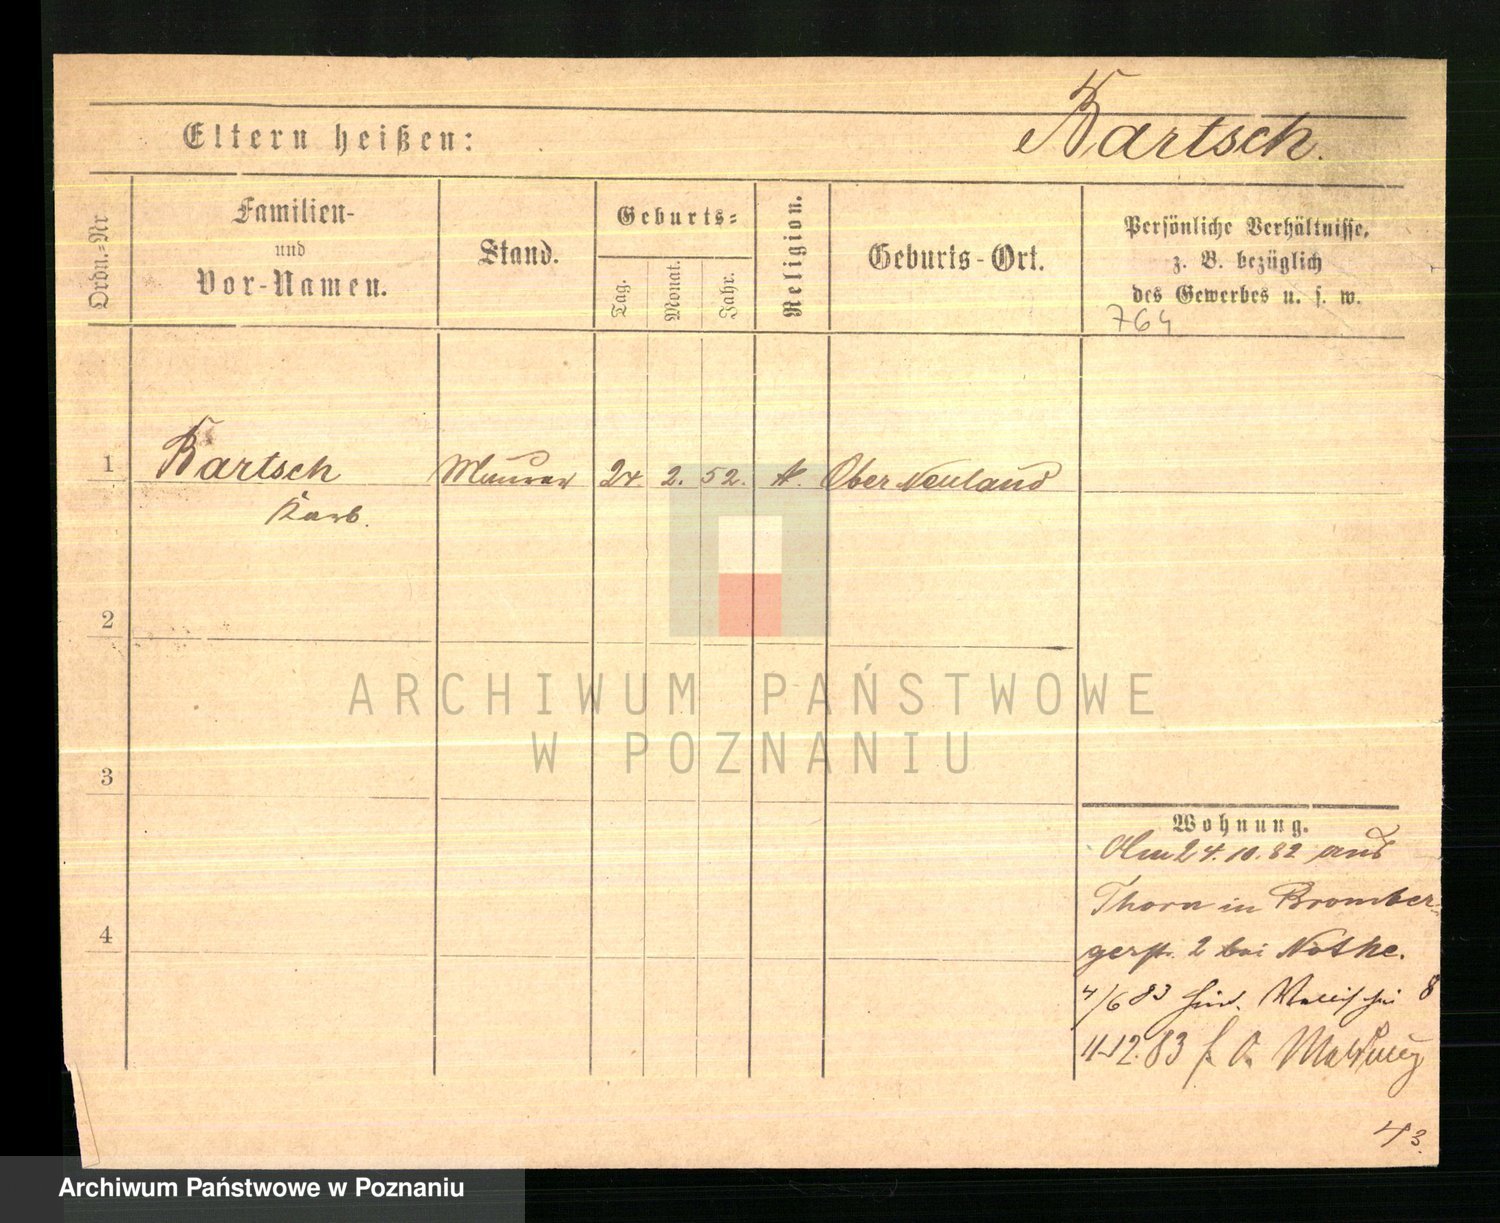 Eltern heißen:
Bartsch.
Ordn.-Nr
Familien-
und
Vor-Namen.
Stand.
Geburts-
Tag.
Monat.
Jahr.
Religion.
Geburts-Ort.
Persönliche Verhältnisse,
z. B. bezüglich
des Gewerbes u. s. w.
764
1
Bartsch
Maurer
24. 2. 52.
k.
Ober Neuland
2
3
4
Wohnung.
Am 24.10.82 aus
Thorn in Bromber-
gerstr. 2 bei Nothe.
4/6 83 8
11.12.83
43
ARCHIWUM PAŃSTWOWE
W POZNANIU
Archiwum Państwowe w Poznaniu